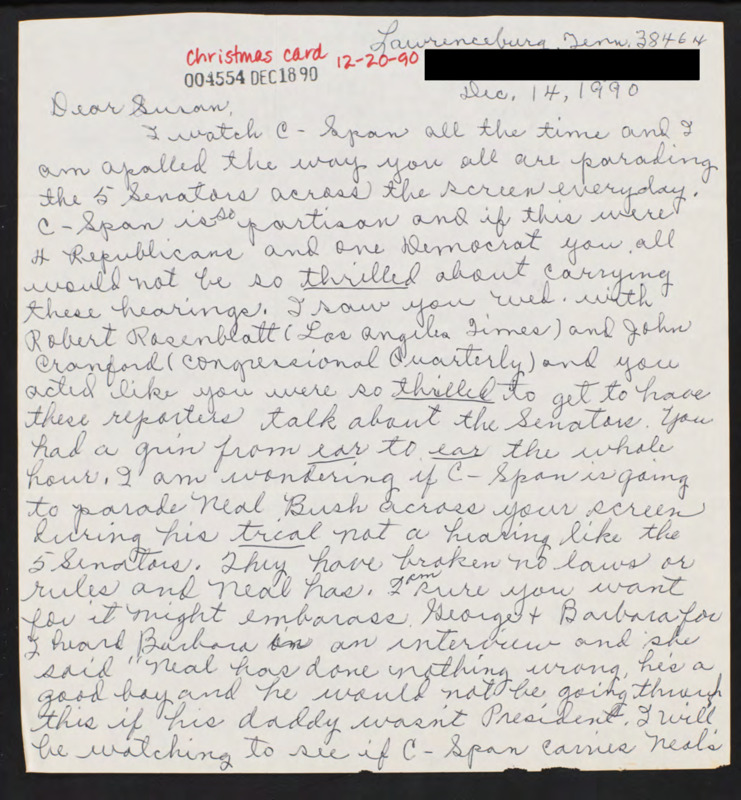 Lawrenceburg, Tenn. 38464
Christmas card 12-20-90
004554 DEC1890
Dec. 14, 1990
Dear Susan,
I watch C-Span all the time and I
am apalled the way you all are parading
the 5 Senators across the screen everyday.
C-Span is so partison and if this were
4 Republicans and one Democrat you all
would not be so thrilled about carrying
these hearings. I saw you wed. with
Robert Rosenblatt (Los Angiles Times) and John
Cranford (Congressional Quarterly) and you
acted like you were so thrilled to get to have
these reporters talk about the Senators. You
had a grin from ear to ear the whole
hour. I am wondering if C-Span is going
to parade Neal Bush across your screen
during his trial not a hearing like the
5 Senators. They have broken no laws or
rules and Neal has. I am sure you want
for it might embarass George + Barbara for
I heard Barbara on an interview and she
said "Neal has done nothing wrong, he's a
good boy and he would not be going through
this if his daddy wasn't President". I will
be watching to see if C-Span carries Neal's